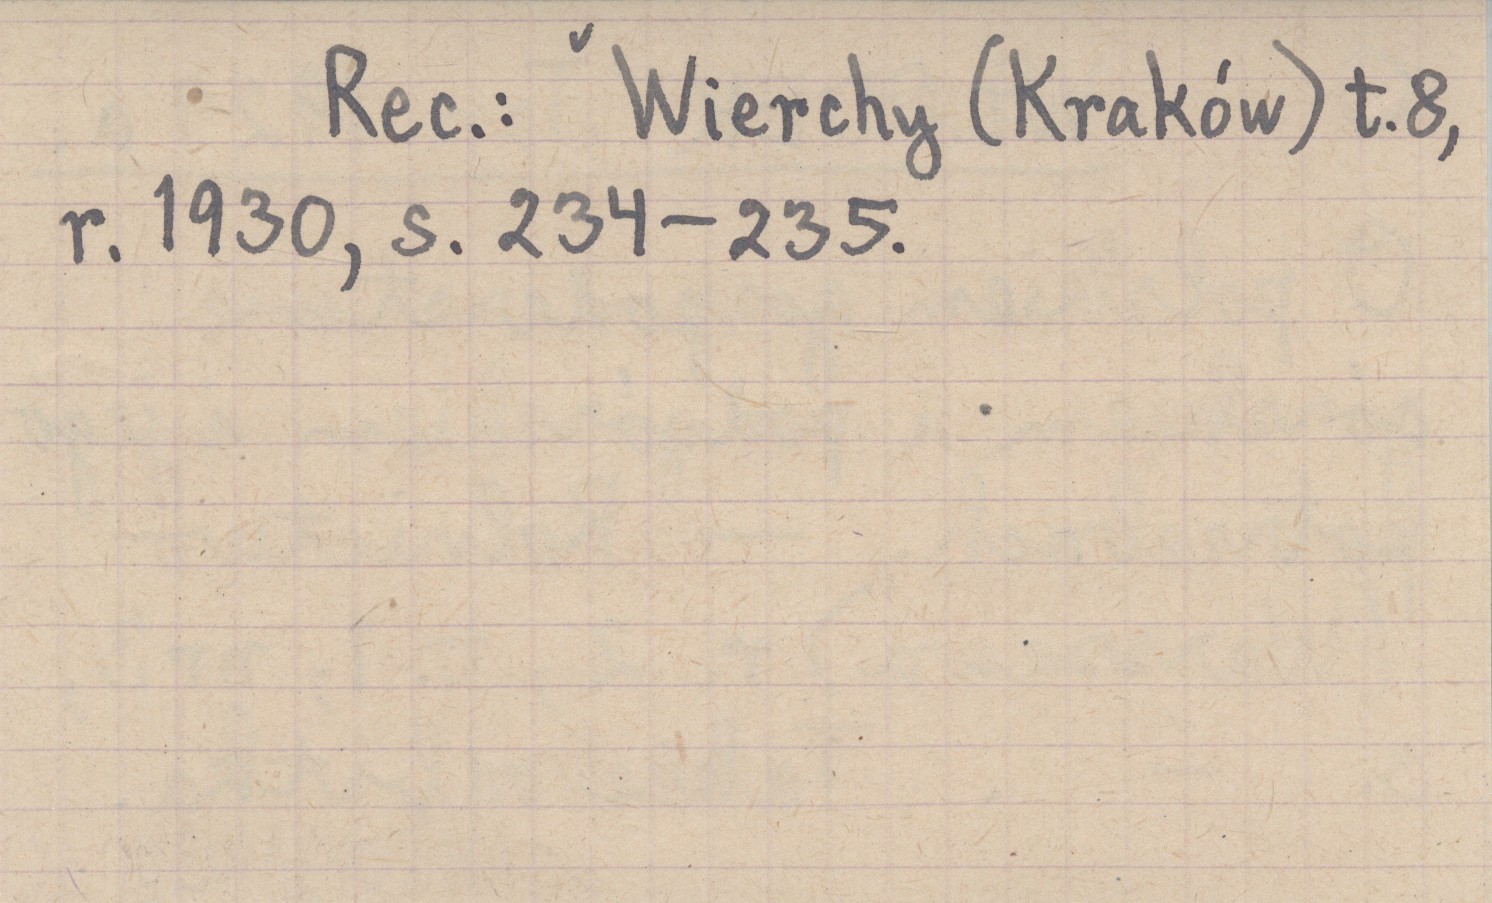 Rec.: Wierchy (Kraków) t. 8,
r. 1930, s. 234-235.